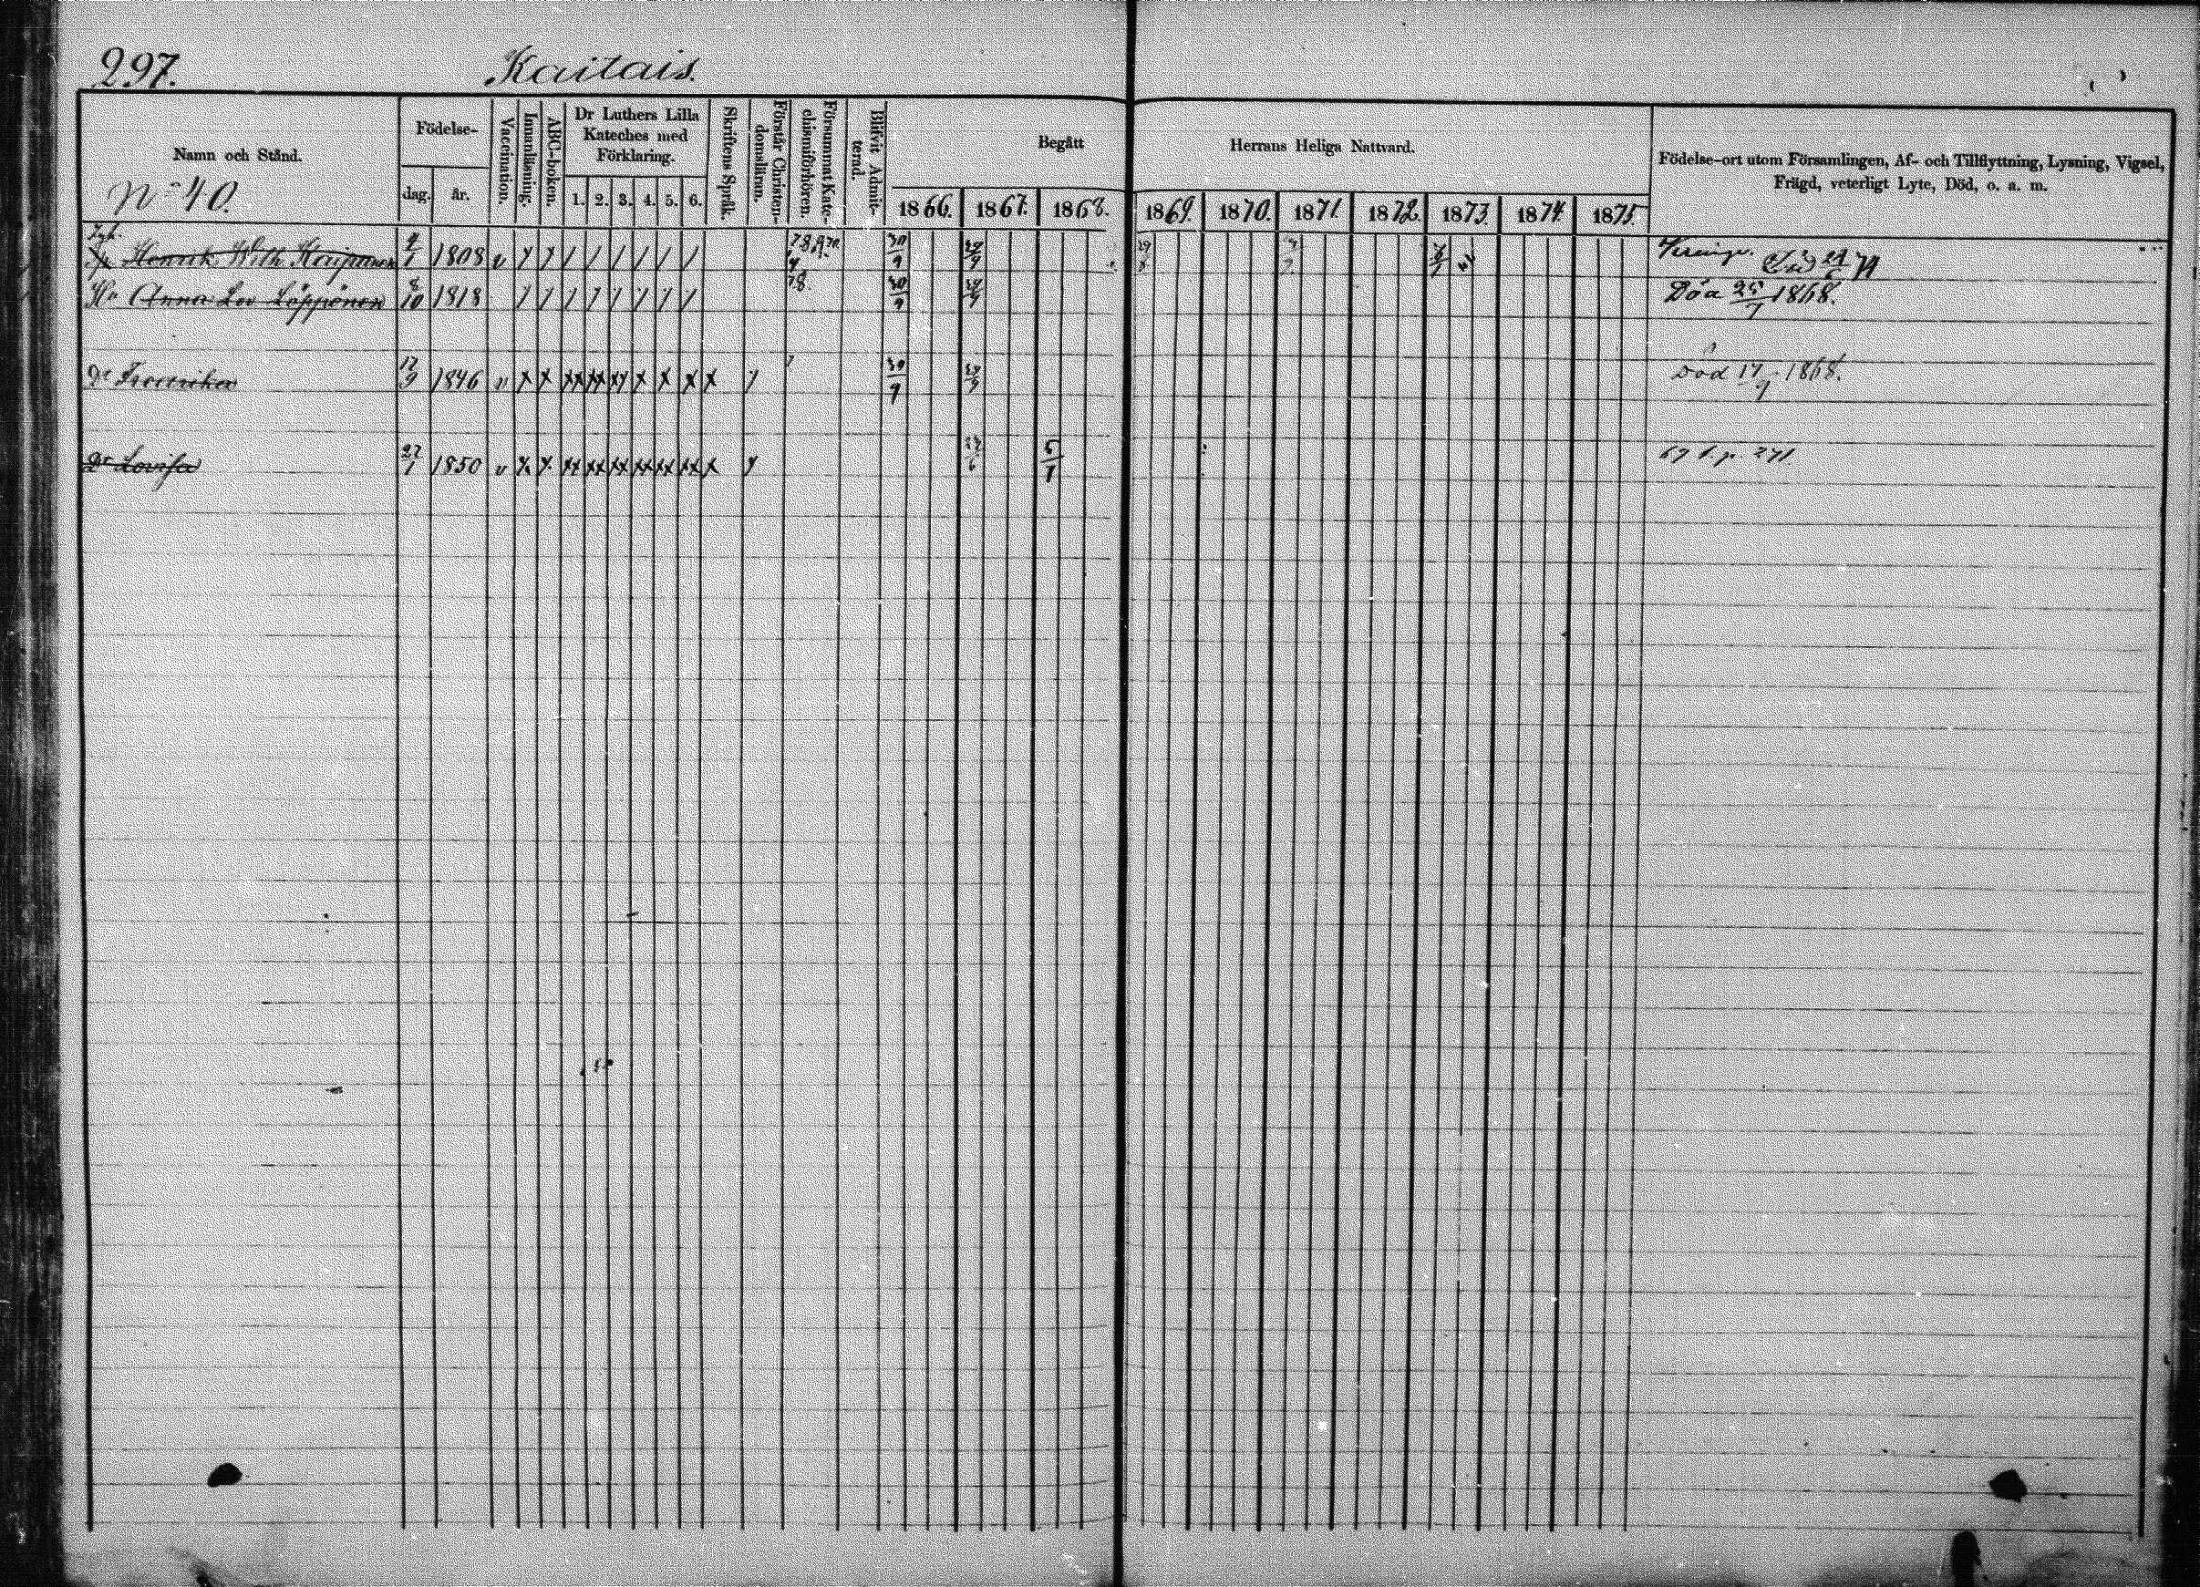 297. Kaitais.
Namn och Stånd.
No 40.
Födelse-
dag. år.
Vaccination.
Innanläsning.
ABC-boken.
Dr Luthers Lilla
Kateches med
Förklaring.
1. 2. 3. 4. 5. 6.
Skriftens Språk.
Förstår Christen-
domsläran.
Försummat Kate-
chismiförhören.
Blifvit Admit-
terad.
Begått Herrans Heliga Nattvard.
1866. 1867. 1868. 1869. 1870. 1871. 1872. 1873. 1874. 1875.
Födelse-ort utom Församlingen, Af- och Tillflyttning, Lysning, Vigsel,
Frägd, veterligt Lyte, Död, o. a. m.
Henrik Wilh 4/1 1808 v 30/9 29/9 Död 24/6 74
Hu Anna Lov Löppönen 8/10 1818 30/9 29/9 Död 25/7 1868.
Dr Fredrika 12/9 1846 v x x xx xx xy x x x x y 30/9 29/9 Död 17/9 1868.
Dr Lovisa 22/1 1850 v x x xx xx xx xx xx xx x y 6/7 67 f. p. 271.